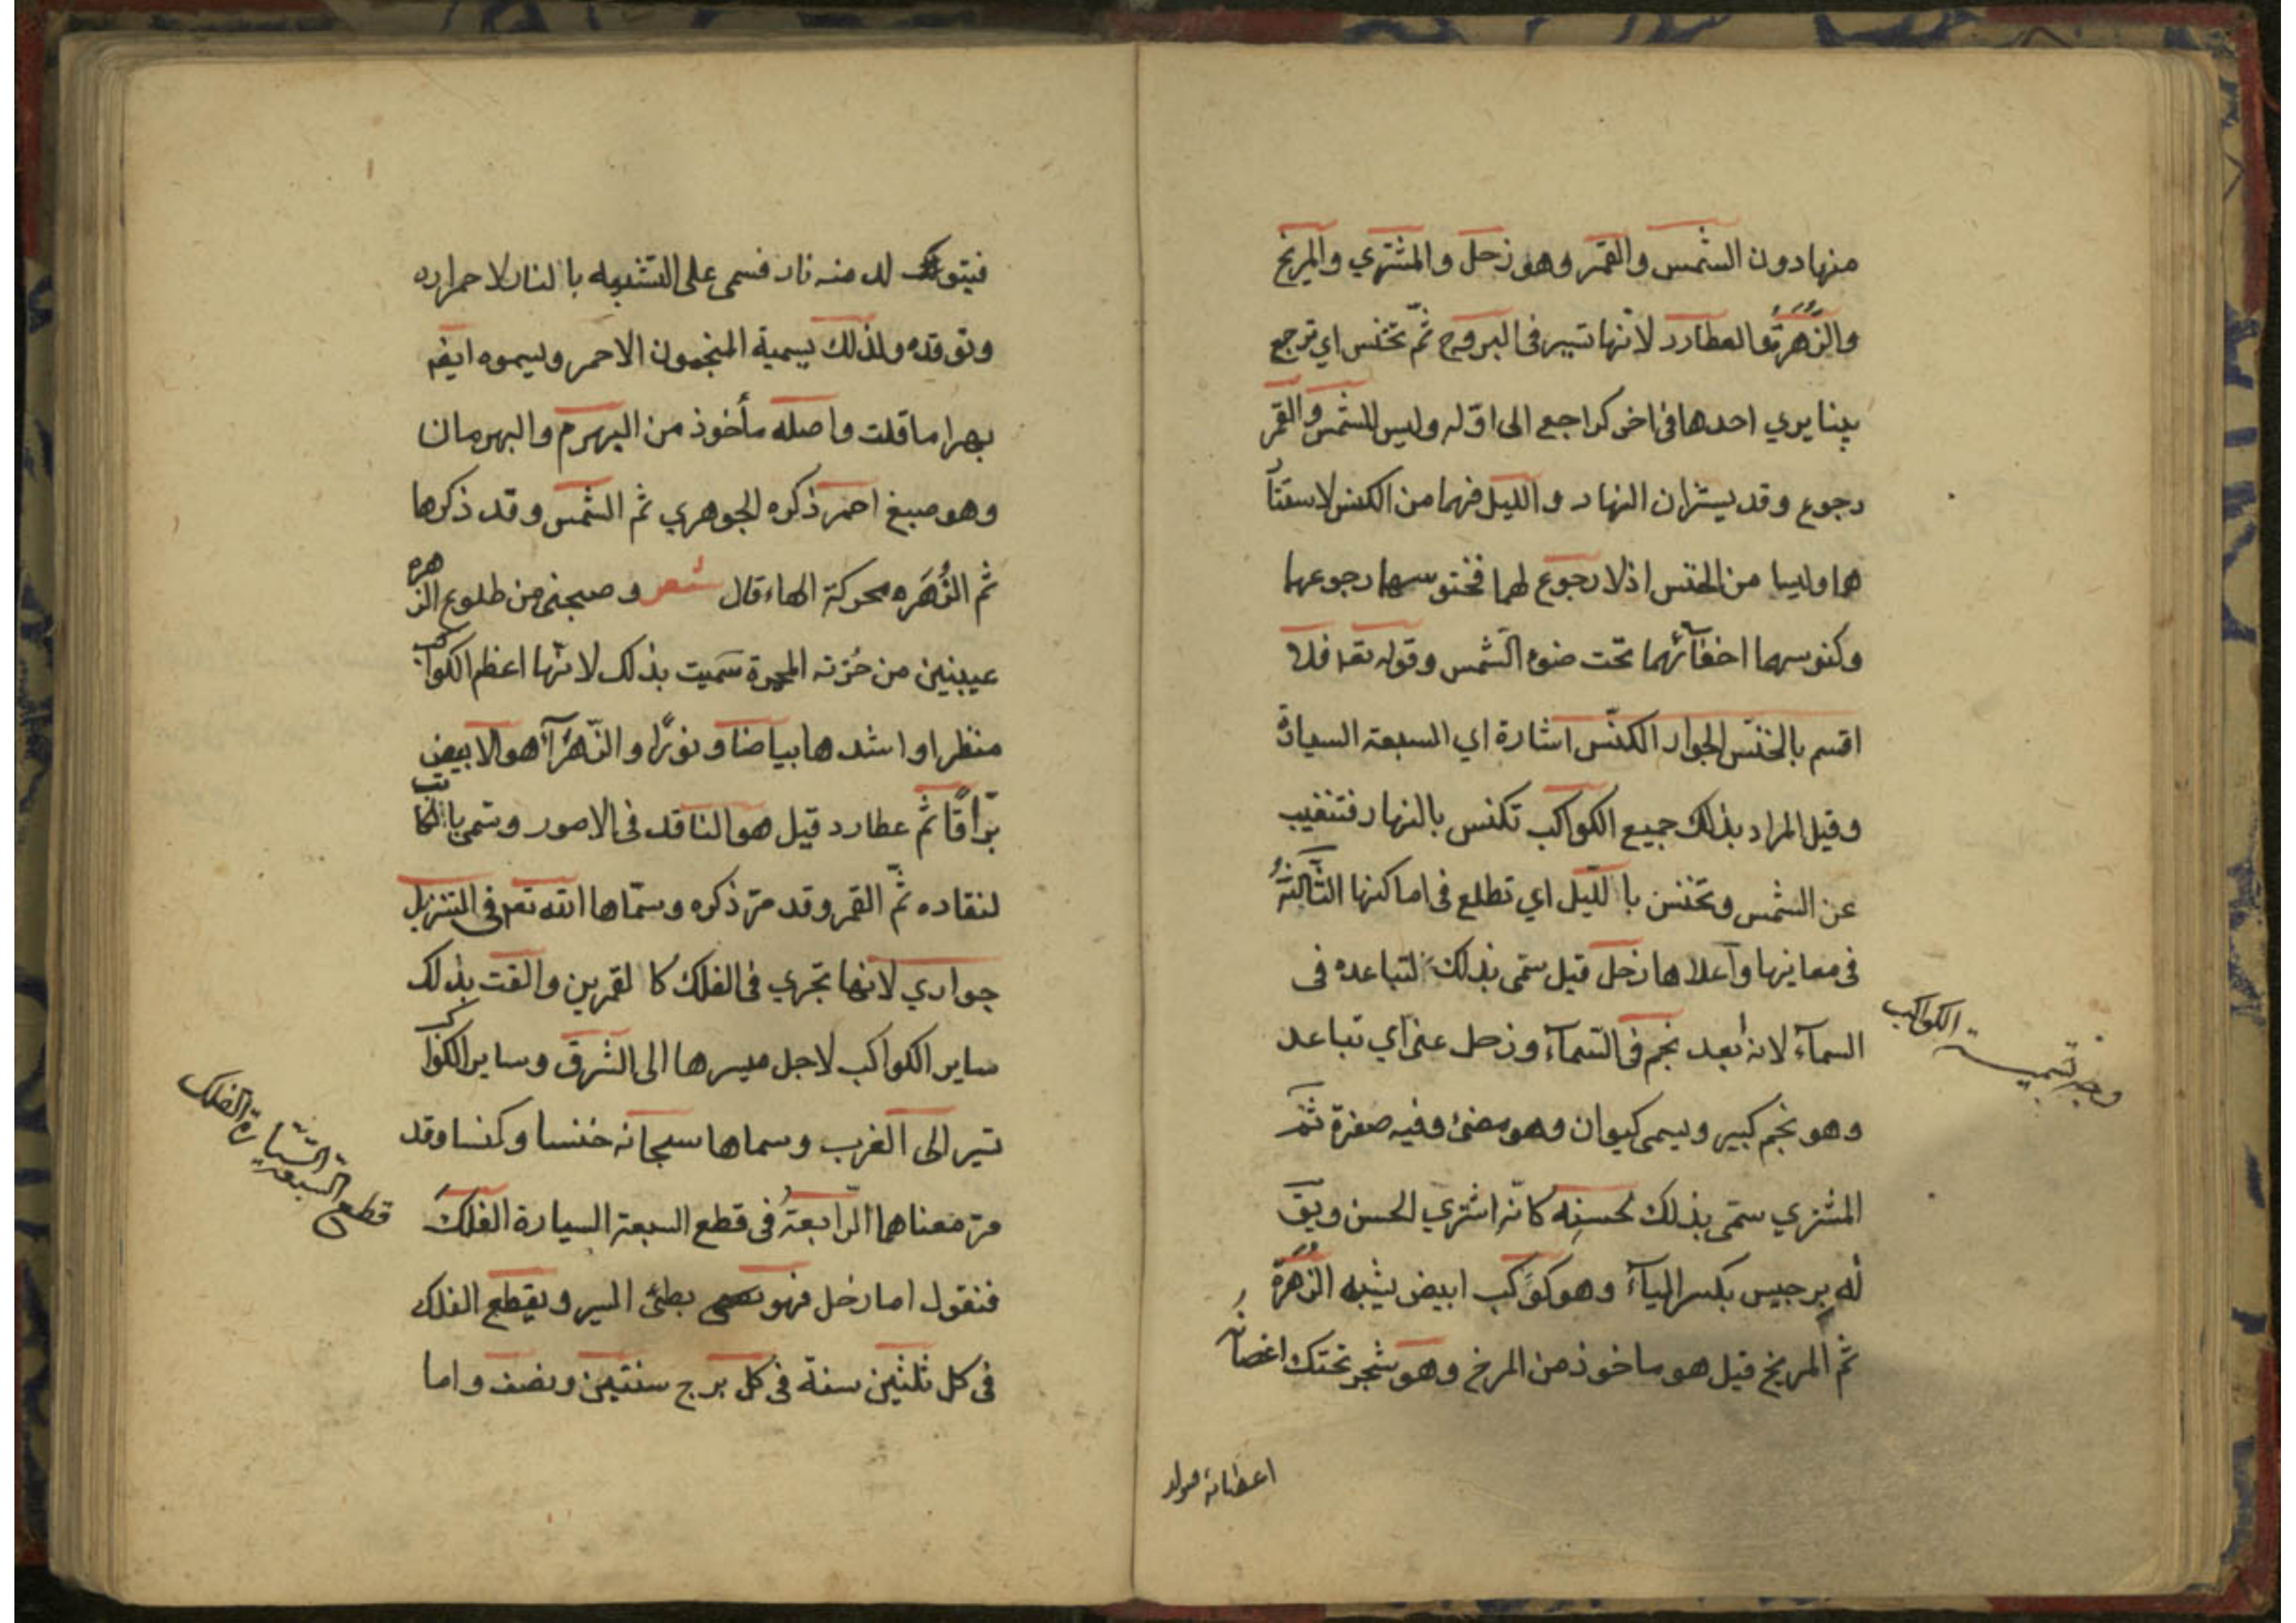 منها دون الشمس والقمر وهو زحل والمشتري والمريخ
والزُّهَرَةُ والعطارد لانّها تسير فى البروج ثمّ تخنس اي ترجع
بينا يري احدها فى اخر كراجع الى اوّله وليس للشمس والقمر
رجوع وقد يستران النهار والليل فهما من الكنس لاستتار
هما وليسا من الخنس اذ لا رجوع لهما فخنوسهما رجوعها
وكنوسهما اخفآئهما تحت ضوء الشمس وقوله تعا فلا
اقسم بالخنّس الجوار الكنّس اشارة اي السبعة السيارة
وقيل المراد بذلك جميع الكواكب تكنس بالنهار فتنغيب
عن الشمس وتخنس با لليل اي تطلع فى اماكنها الثَّالثةُ
فى معاينها وآعلاها زحل قيل سمّى بذلك لتباعده فى
السمآء لانه أبعد نجم فى السّمآء وزحل عنى آي تباعد
وهو نجم كبير ويسمى كيوان وهو مضئ وفيه صفرة ثمّ
المشتري سمّى بذلك لحسنِه كانّه اشتري الحسن ويقَ
له برجيس بكسر البآء وهو كوكب ابيض يشبه الزُّهَرَة
ثم المريخ قيل هو ماخوذ من المرخ وهو شجر تحتك اغصانه
وجه تسمية الكواكب
فيتولد له منه نار فسمى على التشبيه با لنار لاحمراره
وتوقده ولذلك يسمية المنجمون الاحمر ويسموه ايضه
بهراما قلت واصله مأخوذ من البهرم والبهرمان
وهو صبغ احمر ذكره الجوهري ثم الشمس وقد ذكرها
ثم الزُّهَره محركة الهاء قال شعر و صبحنى من طلوع الزهره
عيينين من حُزنه المجرة سَميت بذلك لانّها اعظم الكواكب
منظرا واشدها بياضا ونورًا والزّهرآء هو الابيض
برّاقًا ثم عطارد قيل هو الناقد فى الامور وسمى بالكاتب
لنقاده ثمّ القمر وقد مرّ ذكره وسمّاها الله تعه فى التنزيل
جواري لانها تجري فى الفلك كا لقمرين والقت بذلك
ساير الكواكب لاجل ميسرها الى الشرق وساير الكواكب
تسير الى الغرب وسماها سبحانه خنسا وكنسا وقد
مرّ معناهما الرّابعةُ فى قطع السبعة السيارة الفلكَ
فنقول اما زحل فهو بطئ السير ويقطع الفلك
فى كل ثلثين سنة فى كل برج سنتين ونصف واما
قطع السبعة السّيّارة الفلك